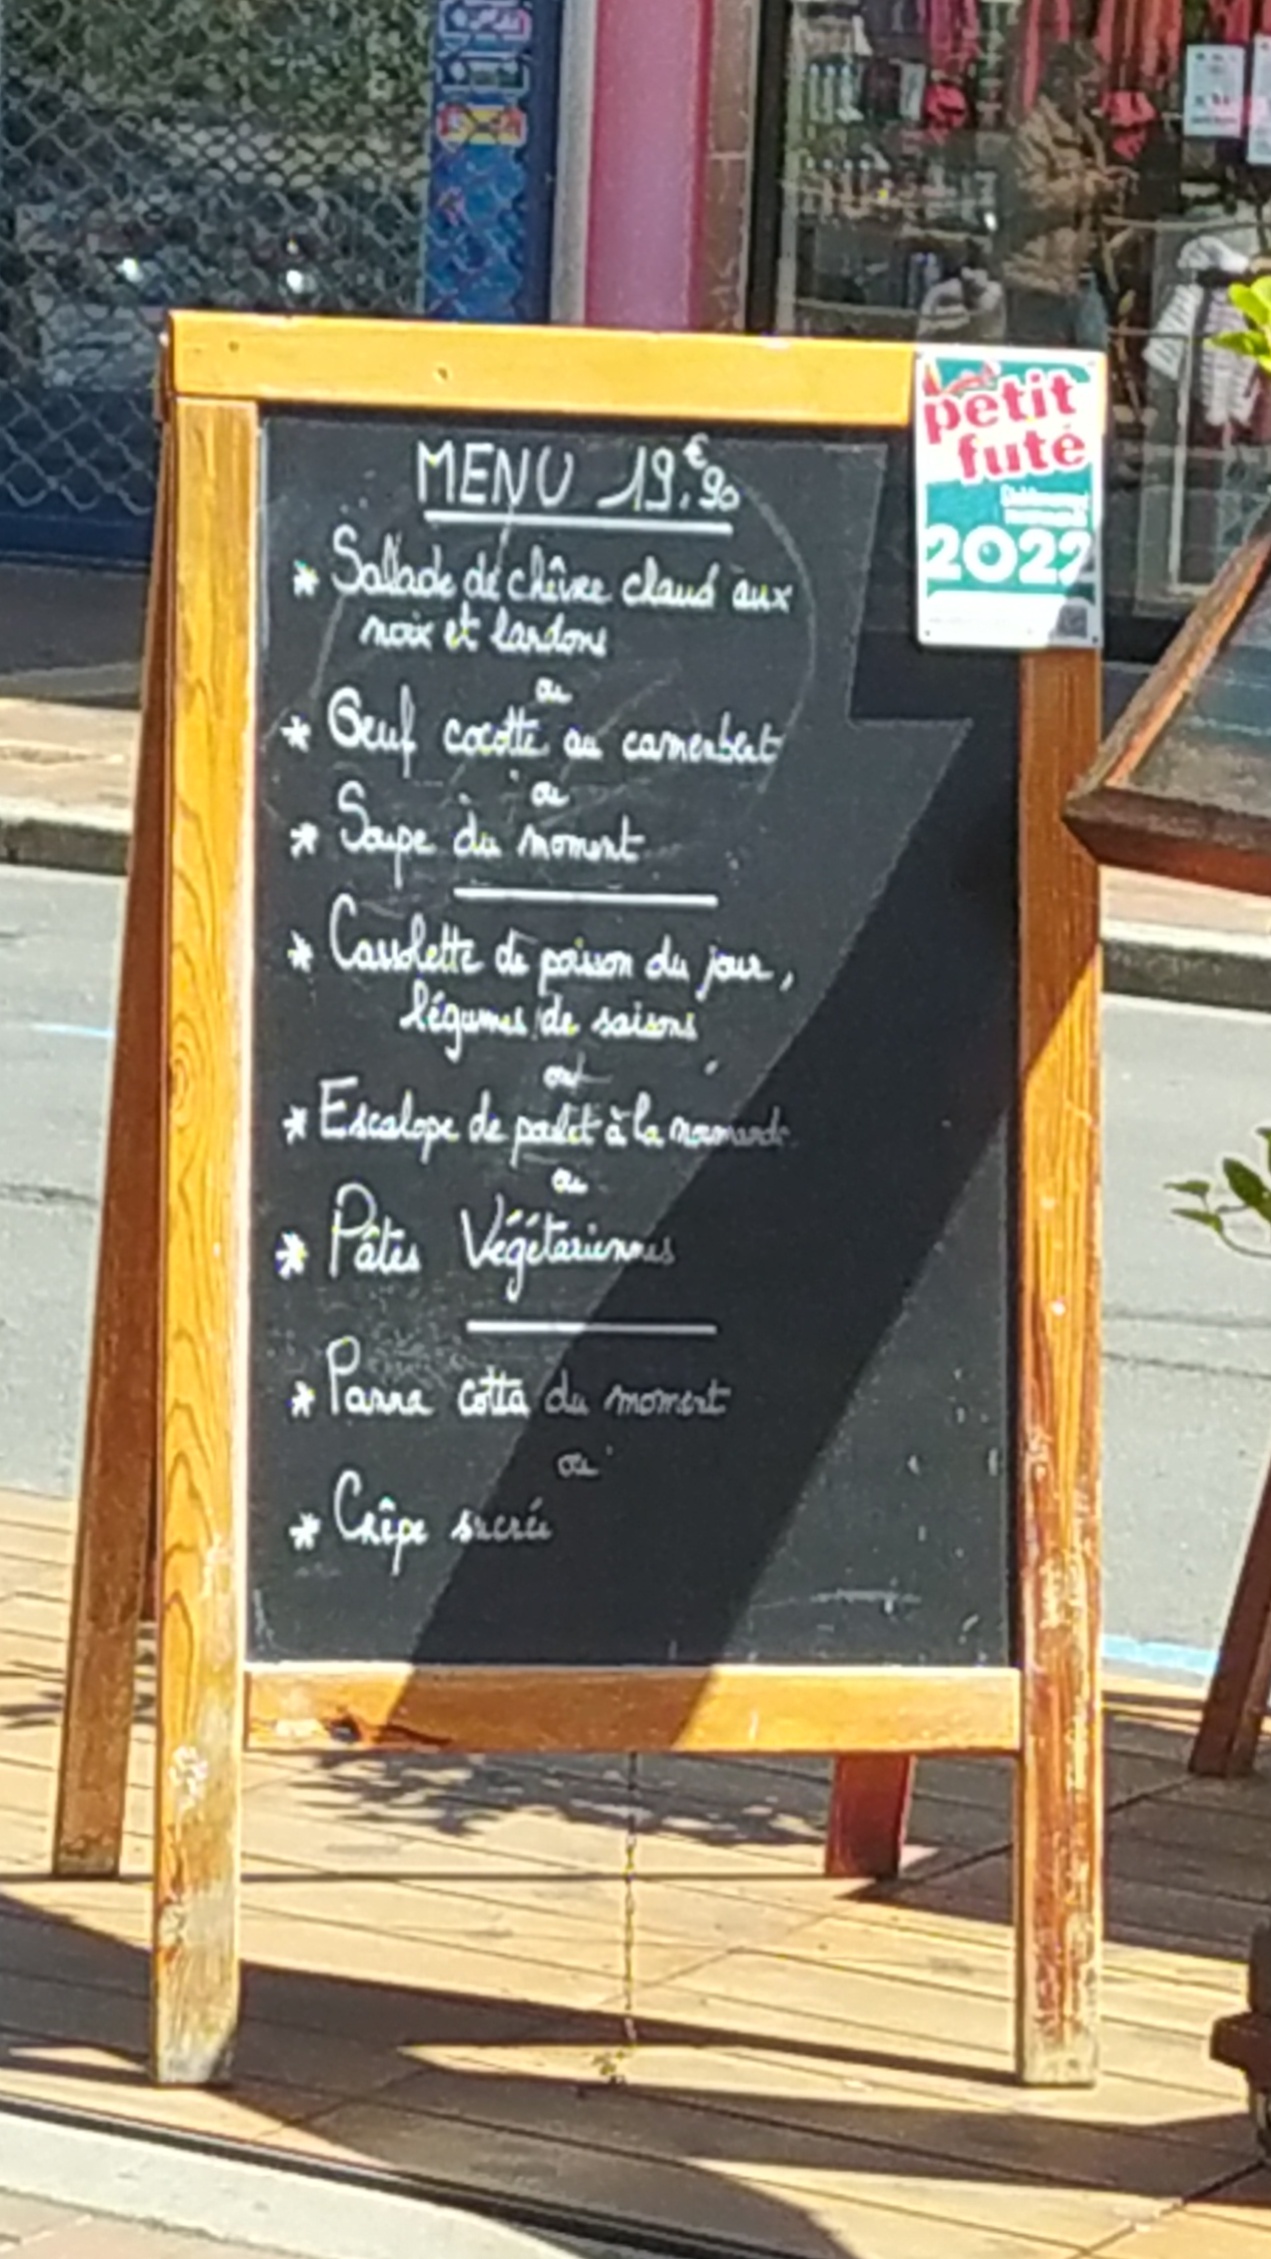 MENU 19,€90
* Salade de chèvre chaud aux
noix et lardons
ou
* Oeuf cocotte au camembert
ou
* Soupe du moment
* Cassolette de poisson du jour,
légumes de saisons
ou
* Escalope de poulet à la normande
ou
* Pâtes Végétariennes
* Panna cotta du moment
ou
* Crêpe sucrée
petit
futé
2022